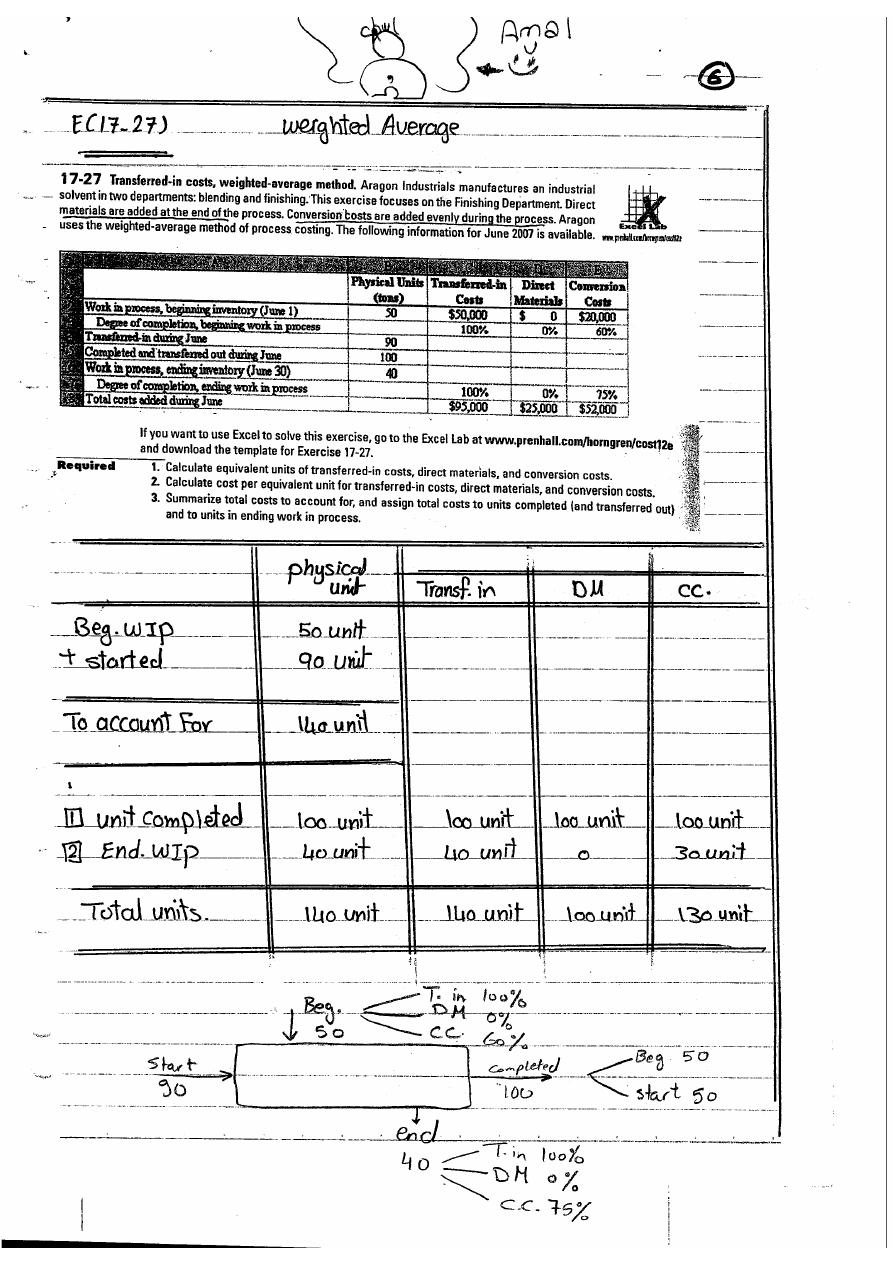 Amal
6
E(17-27) weighted Average
17-27 Transferred-in costs, weighted-average method. Aragon Industrials manufactures an industrial
solvent in two departments: blending and finishing. This exercise focuses on the Finishing Department. Direct
materials are added at the end of the process. Conversion costs are added evenly during the process. Aragon
uses the weighted-average method of process costing. The following information for June 2007 is available.
Excel Lab
www.prenhall.com/horngren/cost12e
Physical Units Transferred-in Direct Conversion
(tons) Costs Materials Costs
Work in process, beginning inventory (June 1) 50 $50,000 $ 0 $20,000
Degree of completion, beginning work in process 100% 0% 60%
Transferred-in during June 90
Completed and transferred out during June 100
Work in process, ending inventory (June 30) 40
Degree of completion, ending work in process 100% 0% 75%
Total costs added during June $95,000 $25,000 $52,000
If you want to use Excel to solve this exercise, go to the Excel Lab at www.prenhall.com/horngren/cost12e
and download the template for Exercise 17-27.
Required 1. Calculate equivalent units of transferred-in costs, direct materials, and conversion costs.
2. Calculate cost per equivalent unit for transferred-in costs, direct materials, and conversion costs.
3. Summarize total costs to account for, and assign total costs to units completed (and transferred out)
and to units in ending work in process.
physical
unit Transf. in DM CC.
Beg. WIP 50 unit
+ started 90 unit
To account For 140 unit
1 unit completed 100 unit 100 unit 100 unit 100 unit
2 End. WIP 40 unit 40 unit 0 30 unit
Total units. 140 unit 140 unit 100 unit 130 unit
Beg. T. in 100%
DM 0%
50 CC. 60%
Start completed Beg 50
90 100 start 50
end
40 T. in 100%
DM 0%
C.C. 75%